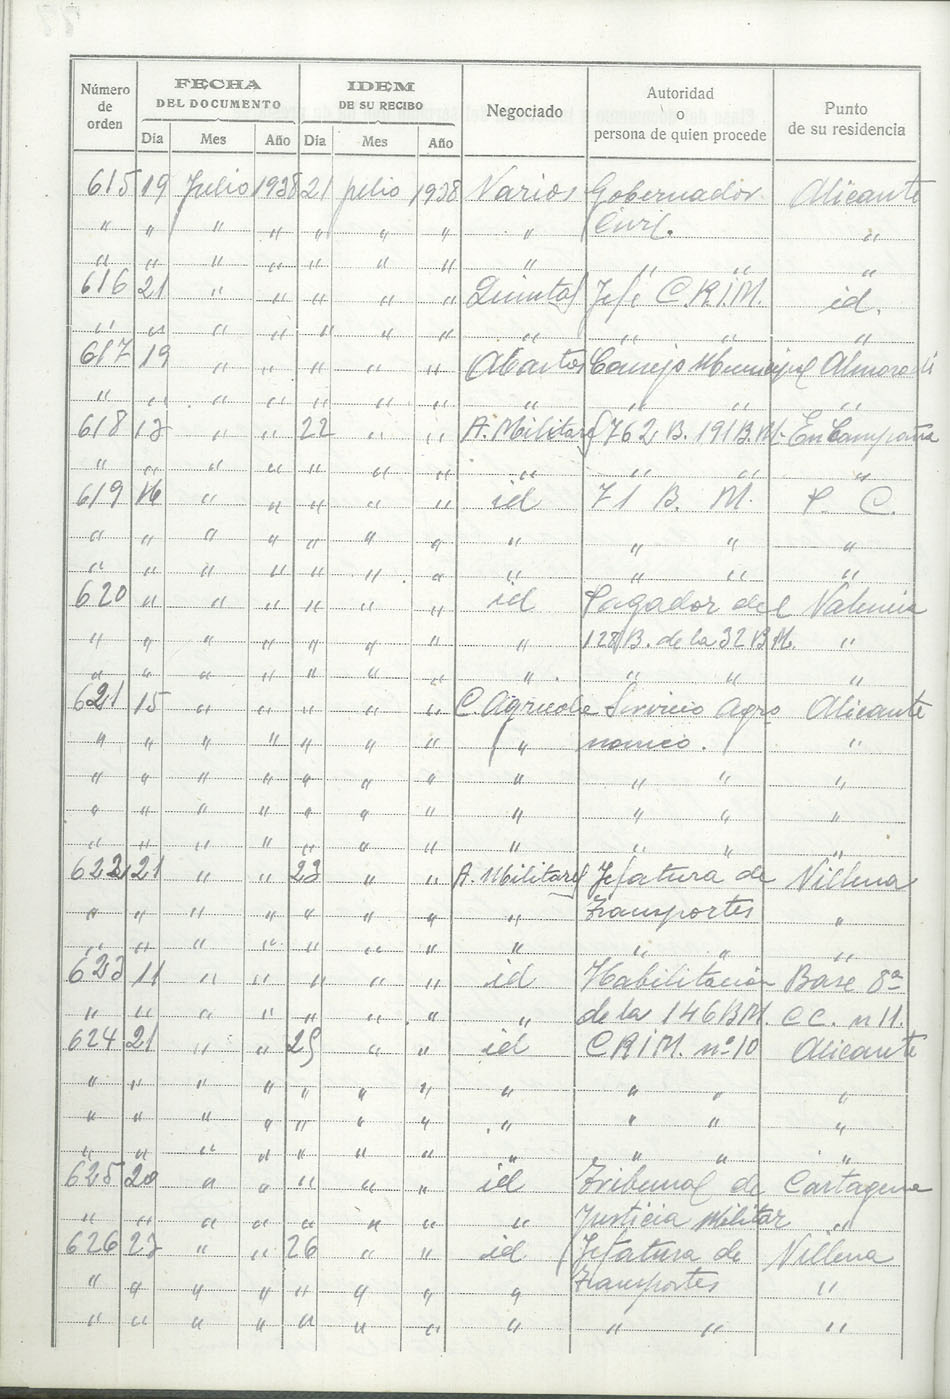 Número de orden | FECHA DEL DOCUMENTO | IDEM DE SU RECIBO | Negociado | Autoridad o persona de quien procede | Punto de su residencia
Día | Mes | Año | Día | Mes | Año
615 19 Julio 1938 21 julio 1938 Varios Gobernador Alicante
" " " " " " " " Civil. "
" " " " " " " " " " "
616 21 " " " " " Quintas Jefe C.R.I.M. id.
" " " " " " " " " " "
617 19 " " " " " Abastos Consejo Municipal Almoradí
" " " " " " " " " " "
618 13 " " 22 " " A. Militares 762 B. 191 B.M. En Campaña
" " " " " " " " " " "
619 16 " " " " " id 71 B. M. P. C.
" " " " " " " " " " "
" " " " " " " " " " "
620 " " " " " " id Pagador del Valencia
" " " " " " " " 128 B. de la 32 B.M. "
" " " " " " " " " " "
621 15 " " " " " C. Agricola Servicio Agro Alicante
" " " " " " " " nomico. "
" " " " " " " " " " "
" " " " " " " " " " "
" " " " " " " " " " "
622 21 " " 23 " " A. Militares Jefatura de Villena
" " " " " " " " Transportes "
" " " " " " " " " " "
623 11 " " " " " id Habilitación Base 8ª
" " " " " " " " de la 146 B.M. C C. n 11.
624 21 " " 25 " " id CRIM. nº 10 Alicante
" " " " " " " " " " "
" " " " " " " " " " "
" " " " " " " " " " "
625 20 " " " " " id Tribunal de Cartagena
" " " " " " " " Justicia Militar "
626 23 " " 26 " " id Jefatura de Villena
" " " " " " " " Transportes "
" " " " " " " " " " "